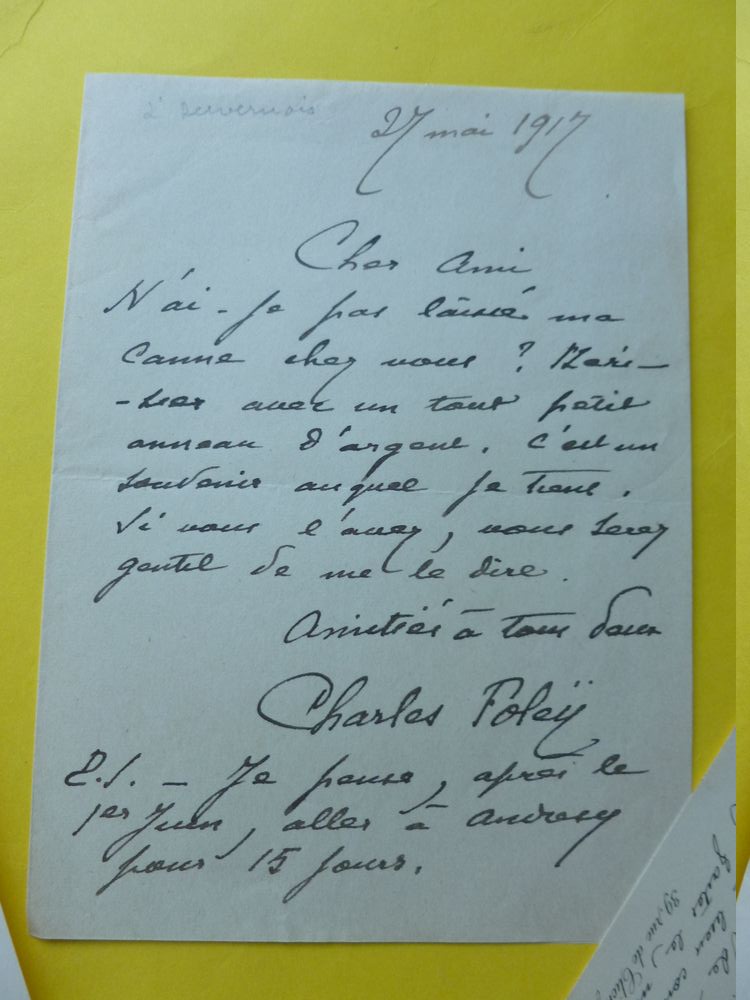 à Duvernois
27 mai 1917
Cher Ami
N'ai-je pas laissé ma
canne chez vous ? Meri-
-sier avec un tout petit
anneau d'argent. C'est un
souvenir auquel je tiens.
Si vous l'avez, vous serez
gentil de me le dire.
Amitiés à tous deux
Charles Foleÿ
P.S. — Je pense, après le
1er Juin, aller à Andresy
pour 15 jours.
39, rue de